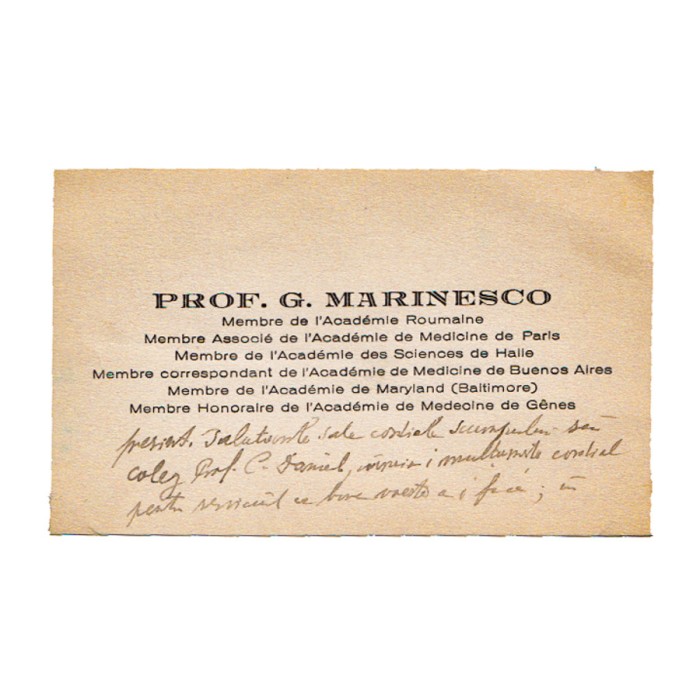 PROF. G. MARINESCO
Membre de l'Académie Roumaine
Membre Associé de l'Académie de Medicine de Paris
Membre de l'Académie des Sciences de Halle
Membre correspondant de l'Académie de Medicine de Buenos Aires
Membre de l'Académie de Maryland (Baltimore)
Membre Honoraire de l'Académie de Medecine de Gênes
present. Salutarile sale cordiale scumpului său
coleg Prof. C. Daniel, căruia i multumeste cordial
pentru serviciul ce bine voeste a i face; în